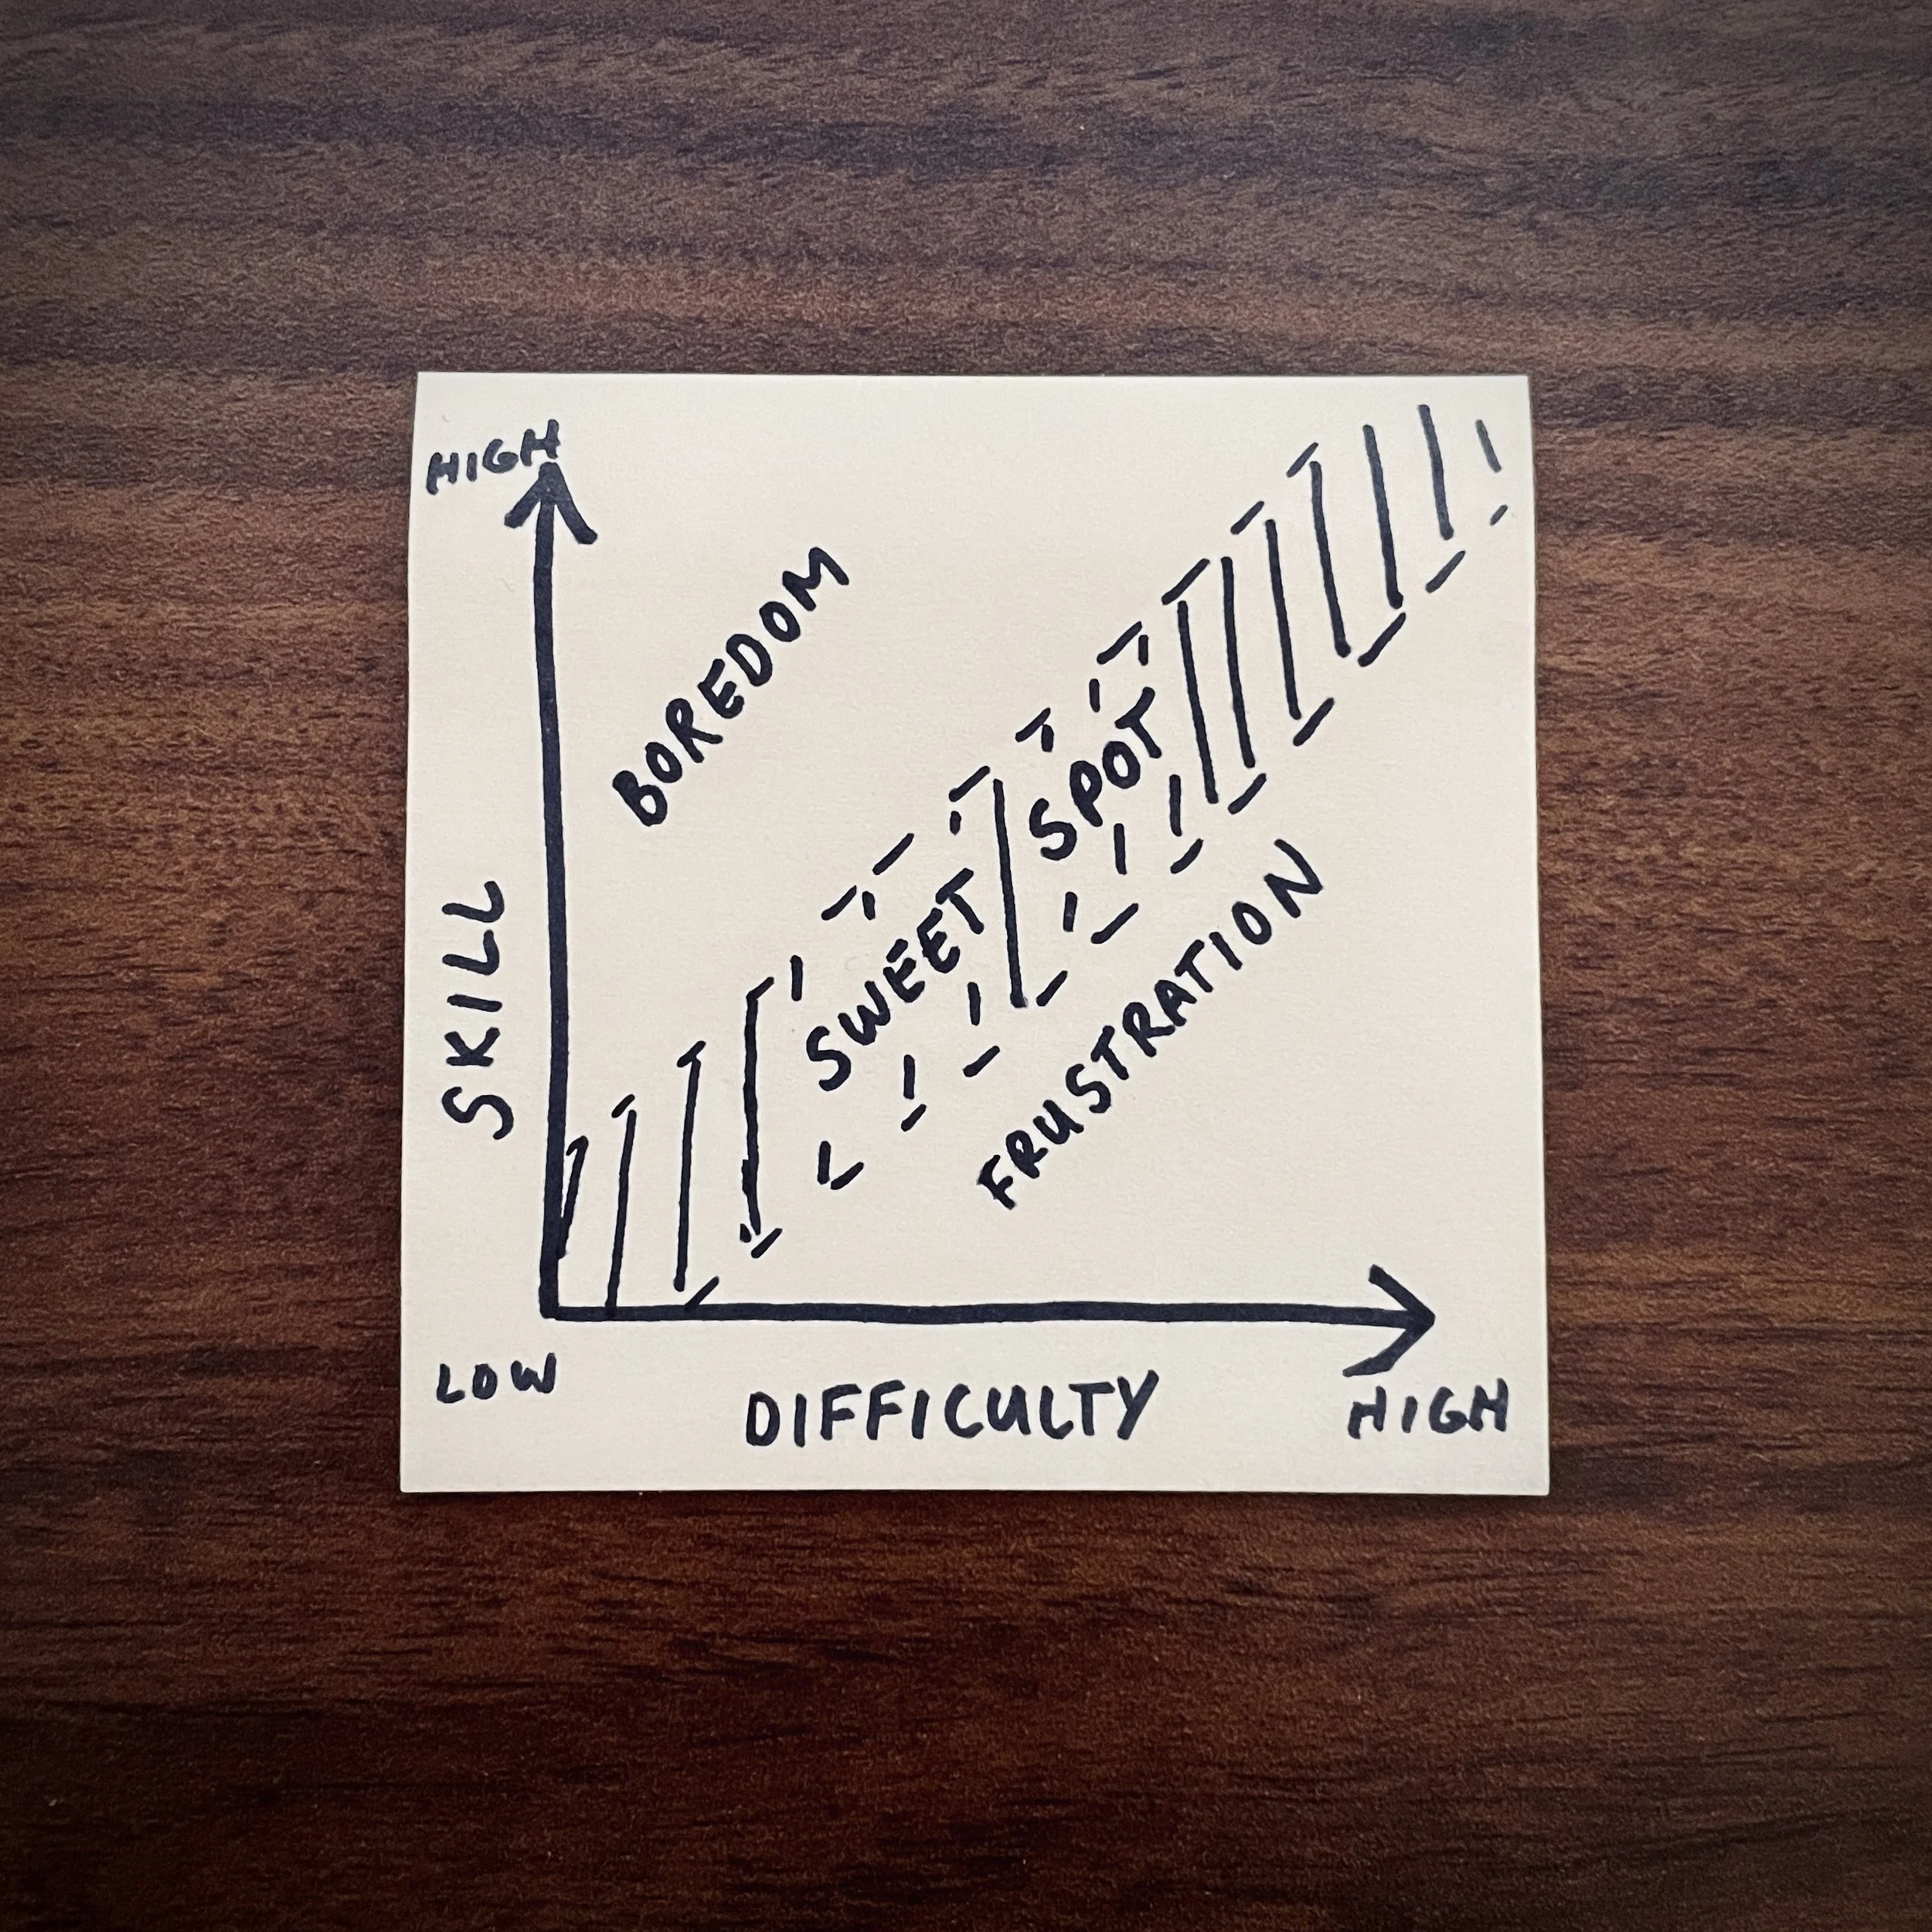 HIGH
BOREDOM
SKILL
SWEET SPOT
FRUSTRATION
LOW
DIFFICULTY
HIGH